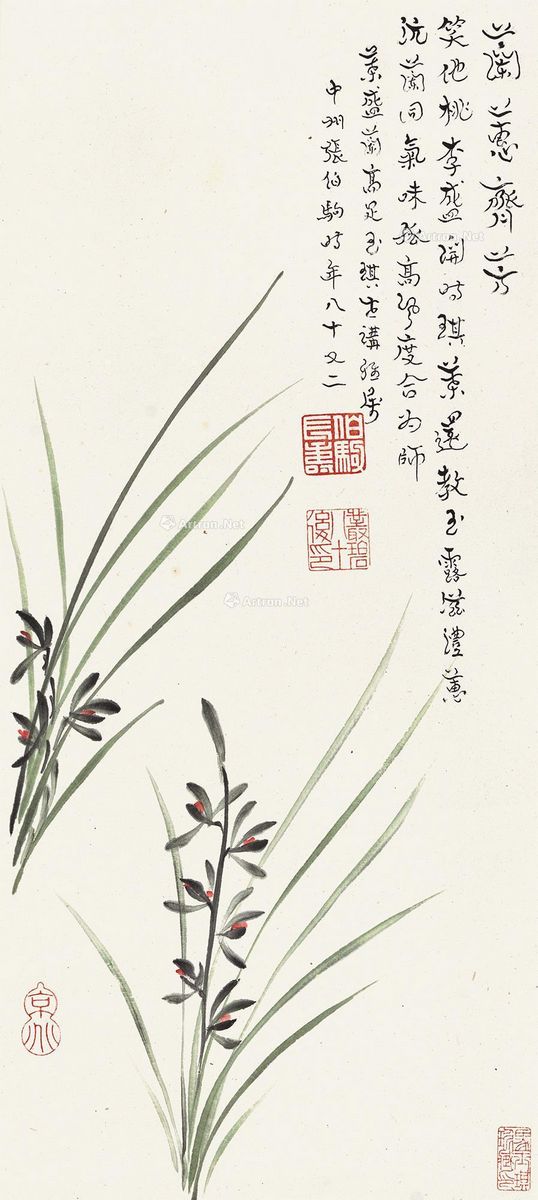 蘭蕙齊芳
笑他桃李盛開時琪葉還教玉露滋澧蕙
沅蘭同氣味孤高風度合為師
葉盛蘭高足玉琪講屬
中州張伯駒時年八十又二
伯駒長壽
叢碧八十後印
京兆
Artron.Net
Artron.Net
Artron.Net